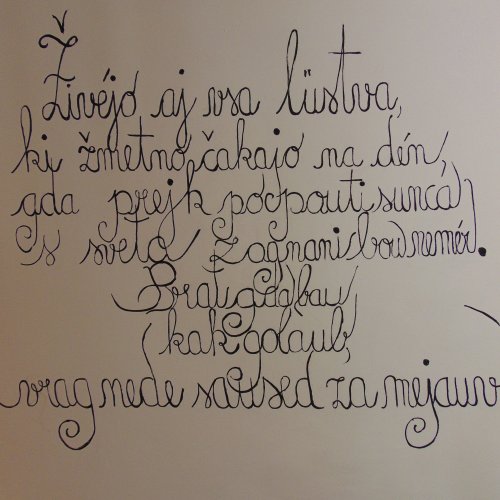 Živéjo aj vsa lüstva,
ki žmetno čakajo na dén,
gda prejk potpouti sunca
s sveta zagnani bou nemér.
Brat gda bau
kak golaub,
vrag nede saused za mejauv